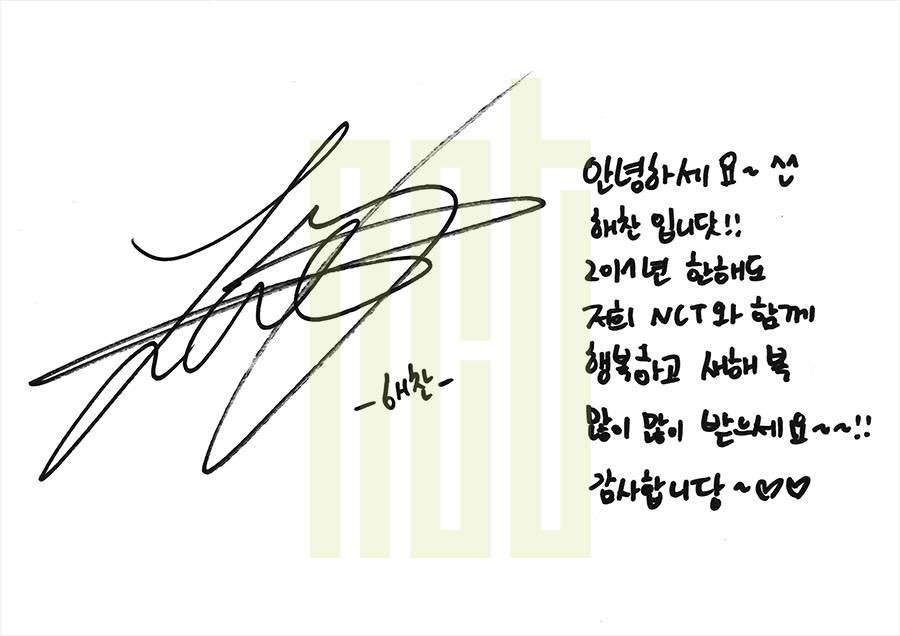 nct
-해찬-
안녕하세요~ ^^
해찬 입니닷!!
2017년 한해도
저희 NCT와 함께
행복하고 새해 복
많이 많이 받으세요~~!!
감사합니당~♡♡